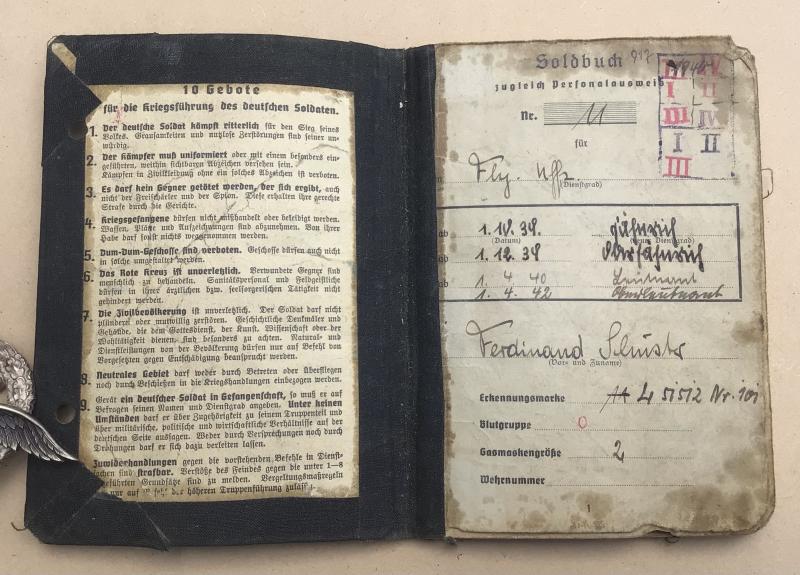 10 Gebote
für die Kriegsführung des deutschen Soldaten.
1. Der deutsche Soldat kämpft ritterlich für den Sieg seines
Volkes. Grausamkeiten und nutzlose Zerstörungen sind seiner un-
würdig.
2. Der Kämpfer muß uniformiert oder mit einem besonders ein-
geführten, weithin sichtbaren Abzeichen versehen sein.
Kämpfen in Zivilkleidung ohne ein solches Abzeichen ist verboten.
3. Es darf kein Gegner getötet werden, der sich ergibt, auch
nicht der Freischärler und der Spion. Diese erhalten ihre gerechte
Strafe durch die Gerichte.
4. Kriegsgefangene dürfen nicht mißhandelt oder beleidigt werden.
Waffen, Pläne und Aufzeichnungen sind abzunehmen. Von ihrer
Habe darf sonst nichts weggenommen werden.
5. Dum-Dum-Geschosse sind verboten. Geschosse dürfen auch nicht
in solche umgestaltet werden.
6. Das Rote Kreuz ist unverletzlich. Verwundete Gegner sind
menschlich zu behandeln. Sanitätspersonal und Feldgeistliche
dürfen in ihrer ärztlichen bzw. seelsorgerischen Tätigkeit nicht
gehindert werden.
7. Die Zivilbevölkerung ist unverletzlich. Der Soldat darf nicht
plündern oder mutwillig zerstören. Geschichtliche Denkmäler und
Gebäude, die dem Gottesdienst, der Kunst, Wissenschaft oder der
Wohltätigkeit dienen, sind besonders zu achten. Natural- und
Dienstleistungen von der Bevölkerung dürfen nur auf Befehl von
Vorgesetzten gegen Entschädigung beansprucht werden.
8. Neutrales Gebiet darf weder durch Betreten oder Überfliegen
noch durch Beschießen in die Kriegshandlungen einbezogen werden.
9. Gerät ein deutscher Soldat in Gefangenschaft, so muß er auf
Befragen seinen Namen und Dienstgrad angeben. Unter keinen
Umständen darf er über Zugehörigkeit zu seinem Truppenteil und
über militärische, politische und wirtschaftliche Verhältnisse auf der
deutschen Seite aussagen. Weder durch Versprechungen noch durch
Drohungen darf er sich dazu verleiten lassen.
Zuwiderhandlungen gegen die vorstehenden Befehle in Dienst-
sachen sind strafbar. Verstöße des Feindes gegen die unter 1—8
geführten Grundsätze sind zu melden. Vergeltungsmaßregeln
nur auf der höheren Truppenführung
Soldbuch
zugleich Personalausweis
Nr. 11
für
Flg. Uffz.
(Dienstgrad)
ab 1.10.39 Fähnrich
(Datum) (neuer Dienstgrad)
ab 1.12.39 Oberfähnrich
ab 1. 4 40 Leutnant
ab 1. 4. 42 Oberleutnant
Ferdinand Schuster
(Vor- und Zuname)
Erkennungsmarke 45552 Nr. 101
Blutgruppe O
Gasmaskengröße 2
Wehrnummer
1
IV
I II
III IV
I II
III